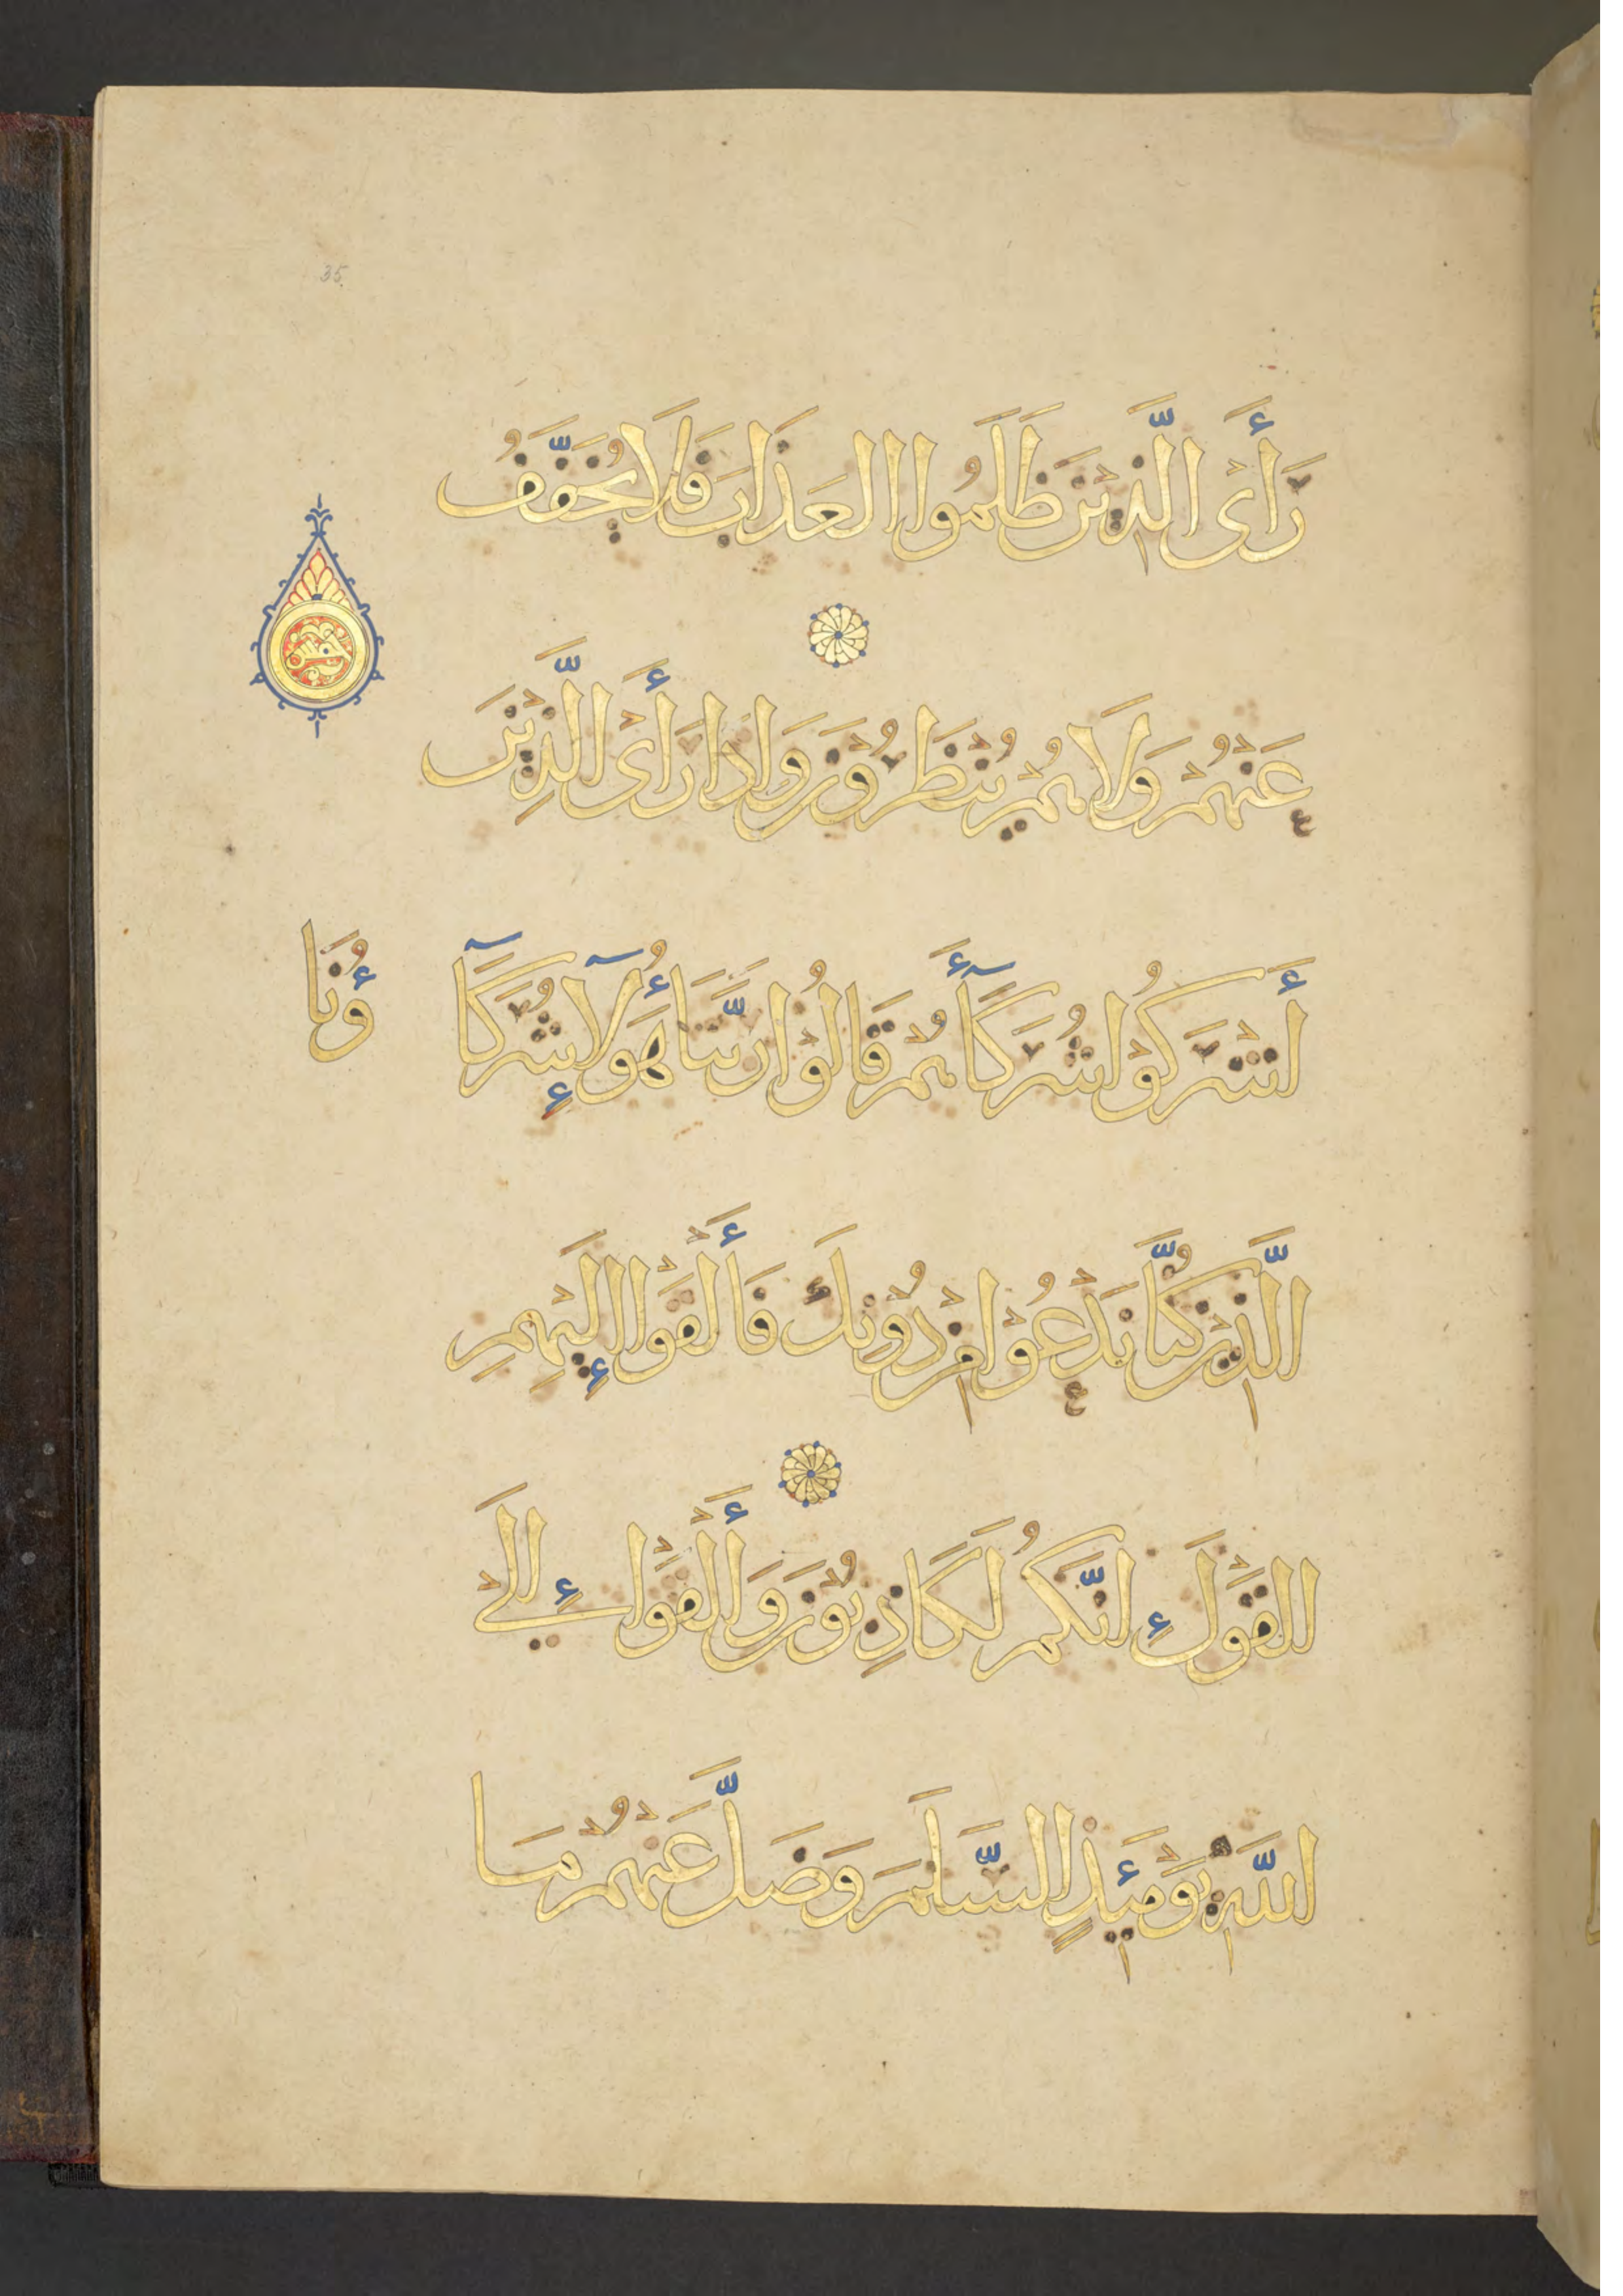 35
رَأَى الَّذِيْنَ ظَلَمُوا الْعَذَابَ فَلَا يُخَفَّفُ
عَنْهُمْ وَلَا هُمْ يُنْظَرُوْنَ وَاِذَا رَأَى الَّذِيْنَ
أَشْرَكُوْا شُرَكَآءَهُمْ قَالُوْا رَبَّنَا هَؤُلَآءِ شُرَكَآ
ؤُنَا
الَّذِيْنَ كُنَّا نَدْعُوْا مِنْ دُوْنِكَ فَأَلْقَوْا إِلَيْهِمِ
الْقَوْلَ اِنَّكُمْ لَكَاذِبُوْنَ وَأَلْقَوْا إِلَى
اللَّهِ يَوْمَئِذٍ السَّلَمَ وَضَلَّ عَنْهُمْ مَا